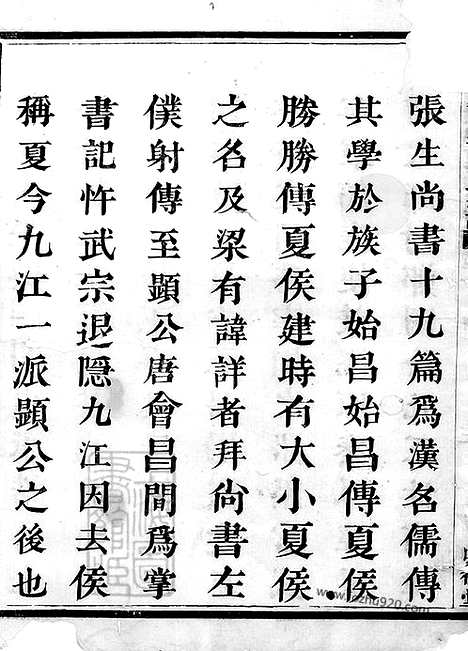 張生尚書十九篇爲漢名儒傳
其學於族子始昌始昌傳夏侯
勝勝傳夏侯建時有大小夏侯
之名及梁有諱詳者拜尚書左
僕射傳至顕公唐會昌間爲掌
書記忤武宗退隱九江因去侯
稱夏今九江一派顕公之後也
www.jozhu920.com